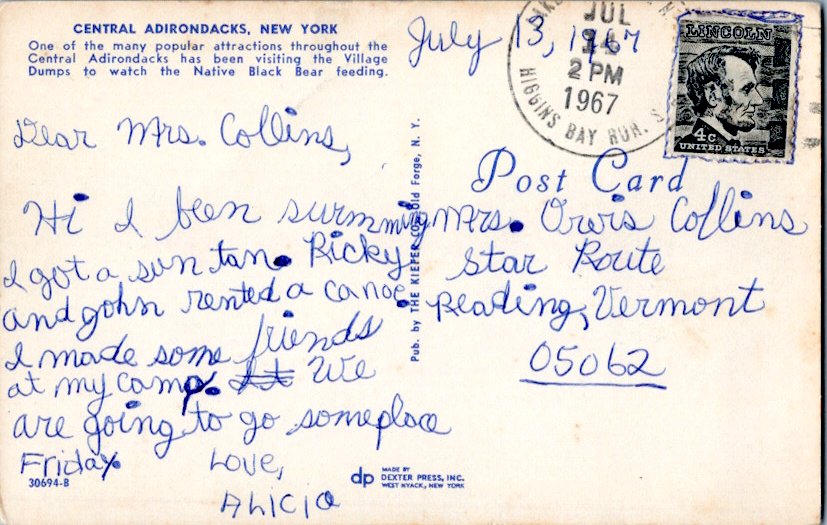 CENTRAL ADIRONDACKS, NEW YORK
One of the many popular attractions throughout the
Central Adirondacks has been visiting the Village
Dumps to watch the Native Black Bear feeding.
July 13, 1967
JUL
2 PM
1967
HIGGINS BAY RUR. S
LINCOLN
4c
UNITED STATES
Dear Mrs. Collins,
Hi I been swimming
I got a sun tan. Ricky
and John rented a canoe
I made some friends
at my camp. We
are going to go someplace
Friday.
Love,
ALICIA
Post Card
Mrs. Orvis Collins
Star Route
Reading, Vermont
05062
Pub. by THE KIEFER CO. Old Forge, N. Y.
30694-B
dp
MADE BY
DEXTER PRESS, INC.
WEST NYACK, NEW YORK